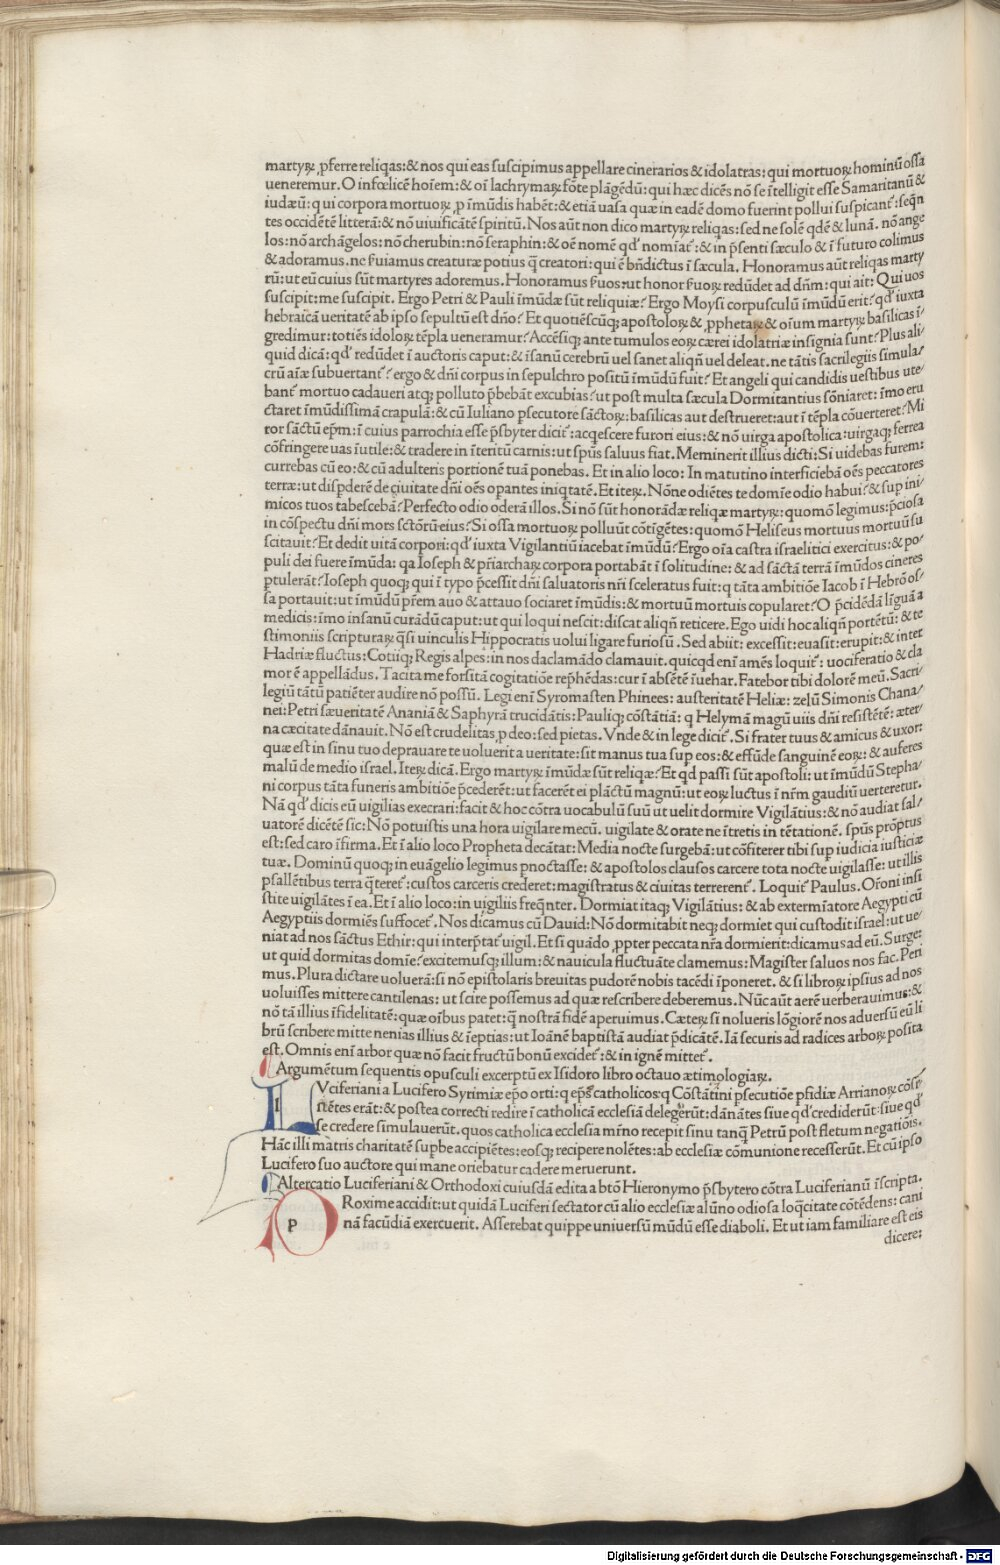 martyꝝ ꝓferre reliqas: & nos qui eas suscipimus appellare cinerarios & idolatras: qui mortuoꝝ hominū ossa
ueneremur. O infœlicē hoīem: & oī lachrymaꝝ fōte plāgēdū: qui hæc dicēs nō se ītelligit esse Samaritanū &
iudæū: qui corpora mortuoꝝ ꝓ īmūdis habēt: & etiā uasa quæ in eadē domo fuerint pollui suspicant᷑: seqn̄
tes occidētē litterā: & nō uiuificātē spiritū. Nos aūt non dico martyꝝ reliqas: sed ne solē qdē & lunā. nō ange
los: nō archāgelos: nō cherubin: nō seraphin: & oē nomē qd' nomīat᷑: & in p̄senti sæculo & ī futuro colimus
& adoramus. ne ẜuiamus creaturæ potius q̄ creatori: qui ē bn̄dictus ī sæcula. Honoramus aūt reliqas marty
rū: ut eū cuius sūt martyres adoremus. Honoramus ẜuos: ut honor ẜuoꝝ redūdet ad dn̄m: qui ait: Qui uos
suscipit: me suscipit. Ergo Petri & Pauli īmūdæ sūt reliquiæ? Ergo Moysi corpusculū īmūdū erit? qd' iuxta
hebraicā ueritatē ab ipso sepultū est dn̄o? Et quotiēscūq; apostoloꝝ & ꝓphetaꝝ & oīum martyꝝ basilicas ī
gredimur: totiēs idoloꝝ tēpla ueneramur? Accēsiq; ante tumulos eoꝝ cærei idolatriæ insignia sunt? Plus ali/
quid dicā: qd' redūdet ī auctoris caput: & īsanū cerebrū uel sanet aliqn̄ uel deleat. ne tātis sacrilegiis simula/
crū aīæ subuertant᷑? ergo & dn̄i corpus in sepulchro positū īmūdū fuit? Et angeli qui candidis uestibus ute/
bant᷑ mortuo cadaueri atq; polluto p̄bebāt excubias? ut post multa sæcula Dormitantius sōniaret: īmo eru
ctaret īmūdissimā crapulā: & cū Iuliano ꝑsecutore sāctoꝝ: basilicas aut destrueret: aut ī tēpla cōuerteret? Mi
ror sāctū ep̄m: ī cuius parrochia esse p̄sbyter dicit᷑: acqescere furori eius: & nō uirga apostolica: uirgaq; ferrea
cōfringere uas īutile: & tradere in īteritū carnis: ut spūs saluus fiat. Meminerit illius dicti: Si uidebas furem:
currebas cū eo: & cū adulteris portionē tuā ponebas. Et in alio loco: In matutino interficiebā oēs peccatores
terræ: ut disꝑderē de ciuitate dn̄i oēs oꝑantes iniqtatē. Et iteꝝ. Nōne odiētes te domīe odio habui? & suꝑ ini/
micos tuos tabescebā? Perfecto odio oderā illos. Si nō sūt honorādæ reliqæ martyꝝ: quomō legimus: p̄ciosa
in cōspectu dn̄i mors sctōꝝ eius? Si ossa mortuoꝝ polluūt cōtīgētes: quomō Heliseus mortuus mortuū su
scitauit? Et dedit uitā corpori: qd' iuxta Vigilantiū iacebat īmūdū? Ergo oīa castra israelitici exercitus: & po/
puli dei fuere īmūda: qa Ioseph & pr̄iarchaꝝ corpora portabāt ī solitudine: & ad sāctā terrā īmūdos cineres
ꝑtulerāt? Ioseph quoq; qui ī typo p̄cessit dn̄i saluatoris nr̄i sceleratus fuit: q tāta ambitiōe Iacob ī Hebrō os/
sa portauit: ut īmūdū pr̄em auo & attauo sociaret īmūdis: & mortuū mortuis copularet? O p̄cidēdā līguā a
medicis: īmo insanū curādū caput: ut qui loqui nescit: discat aliqn̄ reticere. Ego uidi hoc aliqn̄ portētū: & te
stimoniis scripturaꝝ q̄si uinculis Hippocratis uolui ligare furiosū. Sed abiit: excessit: euasit: erupit: & inter
Hadriæ fluctus: Cotiiq; Regis alpes: in nos daclamādo clamauit. quicqd enī amēs loquit᷑: uociferatio & cla
mor ē appellādus. Tacita me forsitā cogitatiōe rep̄hēdas: cur ī absētē īuehar. Fatebor tibi dolorē meū. Sacri/
legiū tātū patiēter audire nō possū. Legi enī Syromasten Phinees: austeritatē Heliæ: zelū Simonis Chana/
nei: Petri sæueritatē Ananiā & Saphyrā trucidātis: Pauliq; cōstātiā: q Helymā magū uiis dn̄i resistētē: æter/
na cæcitate dānauit. Nō est crudelitas ꝓ deo: sed pietas. Vnde & in lege dicit᷑. Si frater tuus & amicus & uxor:
quæ est in sinu tuo deprauare te uoluerit a ueritate: sit manus tua suꝑ eos: & effūde sanguinē eoꝝ: & auferes
malū de medio israel. Iteꝝ dicā. Ergo martyꝝ īmūdæ sūt reliqæ? Et qd passi sūt apostoli: ut īmūdū Stepha/
ni corpus tāta funeris ambitiōe p̄cederēt: ut facerēt ei plāctū magnū: ut eoꝝ luctus ī nr̄m gaudiū uerteretur.
Nā qd' dicis eū uigilias execrari: facit & hoc cōtra uocabulū suū ut uelit dormire Vigilātius: & nō audiat sal/
uatorē dicētē sic: Nō potuistis una hora uigilare mecū. uigilate & orate ne ītretis in tētationē. spūs prōptus
est: sed caro īfirma. Et ī alio loco Propheta decātat: Media nocte surgebā: ut cōfiterer tibi suꝑ iudicia iusticiæ
tuæ. Dominū quoq; in euāgelio legimus ꝑnoctasse: & apostolos clausos carcere tota nocte uigilasse: ut illis
psallētibus terra q̄teret᷑: custos carceris crederet: magistratus & ciuitas terrerent᷑. Loquit᷑ Paulus. Or̄oni insi
stite uigilātes ī ea. Et ī alio loco: in uigiliis freq̄nter. Dormiat itaq; Vigilātius: & ab extermīatore Aegypti cū
Aegyptiis dormiēs suffocet᷑. Nos dicamus cū Dauid: Nō dormitabit neq; dormiet qui custodit israel: ut ue/
niat ad nos sāctus Ethir: qui interp̄tat᷑ uigil. Et si quādo ꝓpter peccata nr̄a dormierit: dicamus ad eū. Surge:
ut quid dormitas domīe? excitemusq; illum: & nauicula fluctuāte clamemus: Magister saluos nos fac. Peri
mus. Plura dictare uoluerā: si nō epistolaris breuitas pudorē nobis tacēdi īponeret. & si libroꝝ ipsius ad nos
uoluisses mittere cantilenas: ut scire possemus ad quæ rescribere deberemus. Nūc aūt aerē uerberauimus: &
nō tā illius īfidelitatē: quæ oībus patet: q̄ nostrā fidē aperuimus. Cæteꝝ si nolueris lōgiorē nos aduersū eū li
brū scribere mitte nenias illius & īeptias: ut Ioānē baptistā audiat p̄dicātē. Iā securis ad radices arboꝝ posita
est. Omnis enī arbor quæ nō facit fructū bonū excidet᷑: & in ignē mittet᷑.
Argumētum sequentis opusculi excerptū ex Isidoro libro octauo ætimologiaꝝ.
LVciferiani a Lucifero Syrimiæ ep̄o orti: q ep̄s catholicos: q Cōstātini ꝑsecutiōe ꝑfidiæ Arrianoꝝ cōsē/
tiētes erāt: & postea correcti redire ī catholicā ecclesiā delegerūt: dānātes siue qd' crediderūt: siue qd'
se credere simulauerūt. quos catholica ecclesia mr̄no recepit sinu tanq̄ Petrū post fletum negatiōis.
Hāc illi matris charitatē suꝑbe accipiētes: eosq; recipere nolētes: ab ecclesiæ cōmunione recesserūt. Et cū ipso
Lucifero suo auctore qui mane oriebatur cadere meruerunt.
Altercatio Luciferiani & Orthodoxi cuiusdā edita a btō Hieronymo p̄sbytero cōtra Luciferianū īscripta.
PRoxime accidit: ut quidā Luciferi sectator cū alio ecclesiæ alūno odiosa loq̄citate cōtēdens: cani
nā facūdiā exercuerit. Asserebat quippe uniuersū mūdū esse diaboli. Et ut iam familiare est eis
dicere:
Digitalisierung gefördert durch die Deutsche Forschungsgemeinschaft - DFG